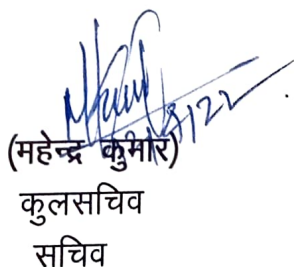 (महेन्द्र कुमार)
कुलसचिव
सचिव